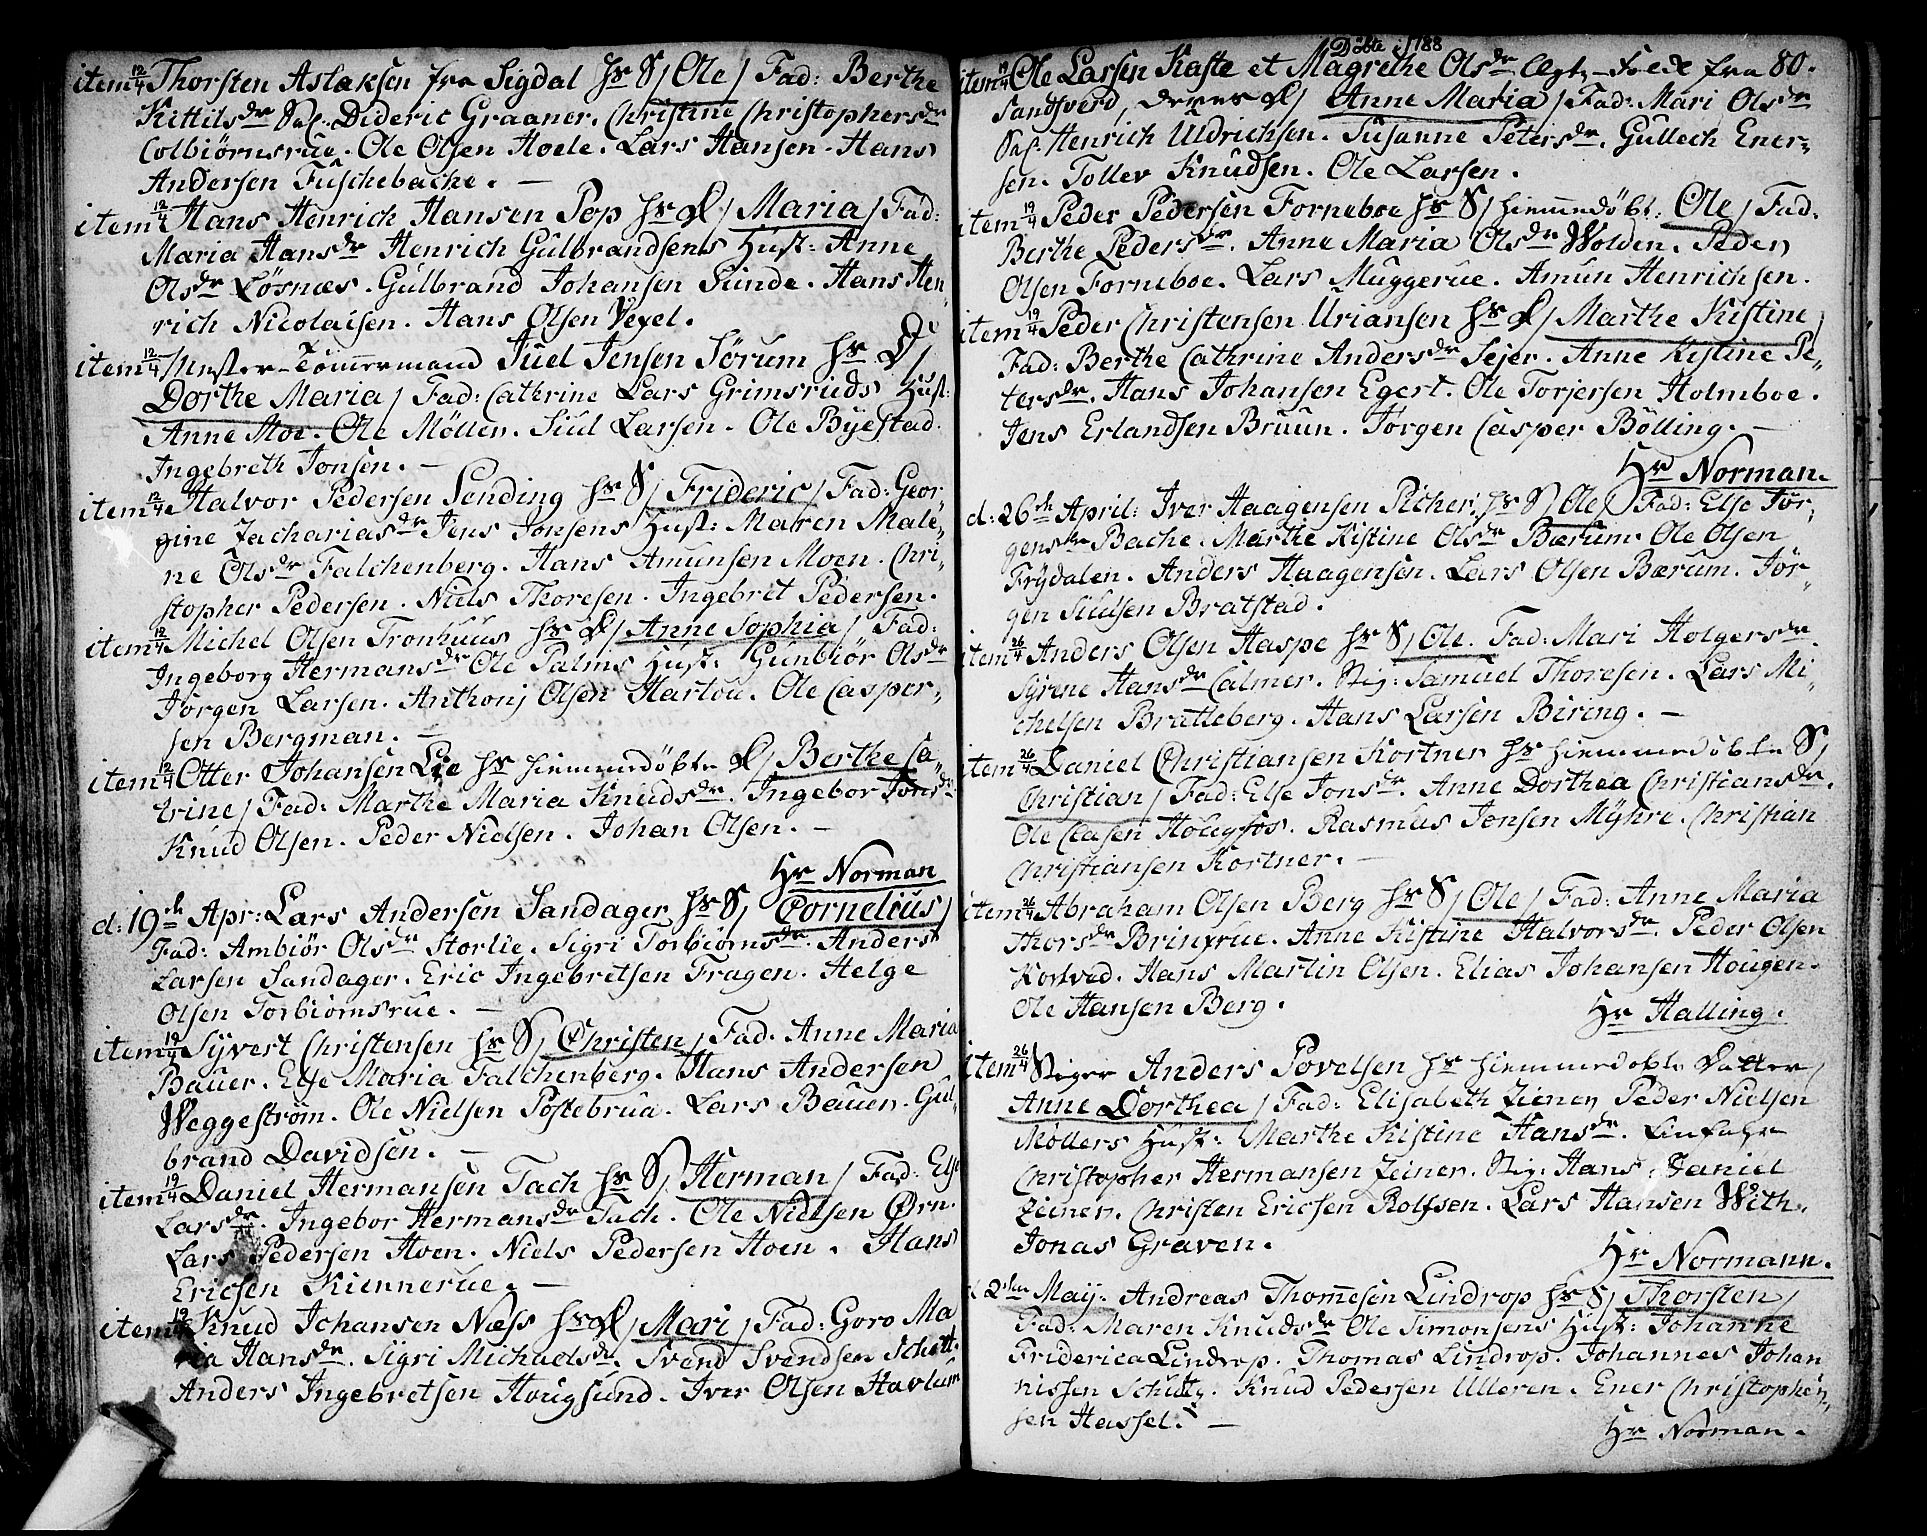 item 12/4 Thorsten Aslaksen fra Sigdal hs S/ Ole / Fad: Berthe
Kittilsdr Sal. Dideric Graaner. Christine Christophersdr
Colbiörnsrue. Ole Olsen Hoele. Lars Hansen. Hans
Andersen Fuschebache. —
item 12/4 Hans Henrich Hansen Pop hs D/ Maria / Fad:
Maria Hansdr Henrich Gulbrandsens Hust: Anne
Olsdr Lösnæs. Gulbrand Johansen Sunde. Hans Hen-
rich Nicolaisen. Hans Olsen Vexel.
item 12/4 Mester-Tömmermand Juel Jensen Sörum hs D/
Dorthe Maria / Fad: Cathrine Lars Grimsruds Hust:
Anne Moe. Ole Möller. Juul Larsen. Ole Byestad.
Ingebreth Jonsen. —
item 12/4 Halvor Pedersen Sending hs S/ Frideric / Fad: Geor-
gine Zachariasdr Jens Jonsens Hust: Maren Male-
ne Olsdr Falchenberg. Hans Amunsen Moen. Chri-
stopher Pedersen. Niels Thoresen. Ingebret Pedersen.
item 12/4 Michel Olsen Tronhuus hs D/ Anne Sophia / Fad:
Ingeborg Hermansdr Ole Palms Hust: Gunbiör Olsdr
Jörgen Larsen. Anthonj Olsen Hartou. Ole Casper-
sen Bergman. —
item 12/4 Otter Johansen Lie hs hiemmedöbte D/ Berthe Ca-
trine / Fad: Marthe Maria Knudsdr. Ingebor Jonsdr
Knud Olsen. Peder Nielsen. Johan Olsen. —
Hr Norman
d: 19de Apr: Lars Andersen Sandager hs S/ Cornelius /
Fad: Ambiör Olsdr Storlie. Sigri Torbiörnsdr. Anders
Larsen Sandager. Eric Ingebretsen Fragen. Helge
Olsen Torbiörnsrue. —
item 19/4 Syvert Christensen hs S/ Christen / Fad: Anne Maria
Bauer. Else Maria Falchenberg. Hans Andersen
Weggeström. Ole Nielsen Postebrua. Lars Bauer. Gul-
brand Davidsen. —
item 19/4 Daniel Hermansen Tach hs S/ Herman / Fad: Else
Larsdr. Ingebor Hermansdr Tach. Ole Nielsen Ørn.
Lars Pedersen Hoen. Niels Pedersen Hoen. Hans
Ericsen Kiennerue. —
item 19/4 Knud Johansen Næss hs D/ Mari / Fad: Goro Ma
ria Hansdr. Sigri Michaelsdr. Svend Svendsen Schøtt.
Anders Ingebretsen Hougsund. Iver Olsen Havlum
Döbte 1788
80.
item 19/4 Ole Larsen Kaste et Magrethe Olsdr Ægte-Folk fra
Sandsverd, deres D/ Anne Maria / Fad: Mari Olsdr
Sal. Henrich Uldrichsen. Susanne Petersdr. Gullech Ener-
sen. Tollev Knudsen. Ole Larsen.
item 19/4 Peder Pedersen Forneboe hs S/ hiemmedöbt: Ole / Fad.
Berthe Pedersdr. Anne Maria Olsdr Wolden. Peder
Olsen Forneboe. Lars Muggerue. Amun Henrichsen.
item 19/4 Peder Christensen Uriansen hs D/ Marthe Kistine /
Fad: Berthe Cathrine Andersdr Sejer. Anne Kistine Pe-
tersdr. Hans Johansen Egert. Ole Torjersen Holmboe.
Jens Erlandsen Bruun. Jörgen Casper Bölling. —
Hr Norman.
d: 26de April: Iver Haagensen Picher hs S/ Ole / Fad: Else Jör-
gensdr Bache. Marthe Kistine Olsdr Bærum. Ole Olsen
Frydalen. Anders Haagensen. Lars Olsen Bærum. Jör-
gen Juulsen Bratstad.
item 26/4 Anders Olsen Haspe hs S/ Ole. Fad: Mari Holgersdr
Syrene Hansdr Calmer. Stig: Samuel Thoresen. Lars Mi-
chelsen Bratteberg. Hans Larsen Biring. —
item 26/4 Daniel Christiansen Kortner hs hiemmedöbte S/
Christian / Fad: Else Jonsdr. Anne Dorthea Christiansdr.
Ole Clasen Hougfos. Rasmus Jonsen Myhre. Christian
Christiansen Kortner. —
item 26/4 Abraham Olsen Berg hs S/ Ole / Fad: Anne Maria
Thorsdr Brinxrue. Anne Kistine Halvorsdr. Peder Olsen
Kortvad. Hans Martin Olsen. Elias Johansen Hougen.
Ole Hansen Berg.
Hr Halling.
item 26/4 Stiger Anders Povelsen hs hiemmedøbte Datter /
Anne Dorthea / Fad: Elisabeth Zeiner Peder Nielsen
Möllers Hust: Marthe Kistine Hansdr. Einfahr
Christopher Hermansen Zeiner. Stig: Hans Daniel
Zeiner. Christen Ericsen Rolfsen. Lars Hansen With.
Jonas Graven.
Hr Normann.
d 2den Maij: Andreas Thomesen Lindrop hs S/ Thorsten /
Fad: Maren Knudsdr Ole Simonsens Hust: Johanne
Friderica Lindrop. Thomas Lindrop. Johannes Johan
nissen Schütz. Knud Pedersen Ulleren. Ener Christophen-
sen Hassel. —
Hr Norman.